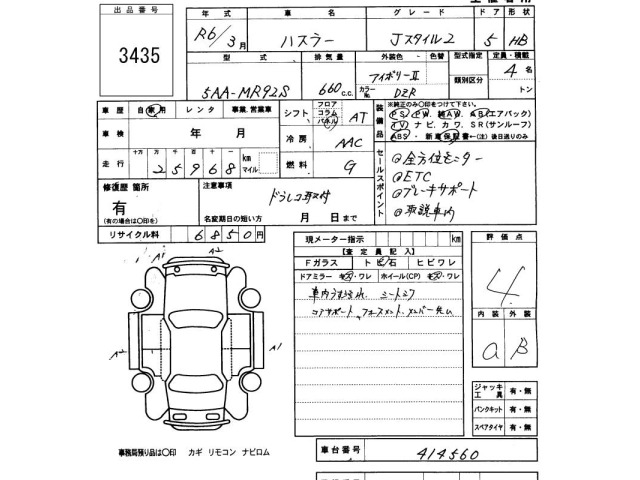 出品番号
3435
年式 車名 グレード ドア 形状
R6/3月 ハスラー Jスタイル2 5 HB
型式 排気量 外装色 色替 型式指定 定員・積載
5AA-MR92S 660c.c. アイボリーII 類別区分 4名
カラーNo. DZR トン
車歴 自家用 レンタ 事業.営業車
シフト フロア コラム パネル AT
装備品 ※純正のみ○印をつけて下さい。
PS PW. 純AW. AB(エアバック)
TV ナビ. カワ. SR(サンルーフ)
ABS ・新車保証書←(注)後日送りのみ
車検 年 月
冷房 AAC
走行 十万 万 千 百 十 km マイル
25968
燃料 G
セールスポイント
◎全方位モニター
◎ETC
◎ブレーキサポート
◎取説車内
修復歴 箇所
有
(有の場合は○印を)
注意事項
ドラレコ取付
名変期日の短い方 月 日まで
リサイクル料 6850円
現メーター指示 km
【査定員記入】
Fガラス トビ石 ヒビワレ
ドアミラー キズ・ワレ ホイール(CP) キズ・ワレ
車内うすよごれ. シートシワ
コアサポート
評価点
4
内装 外装
a B
A2 A1
A2 A1
ジャッキ 工具 有・無
パンクキット 有・無
スペアタイヤ 有・無
事務局預り品は○印 カギ リモコン ナビロム
車台番号 414560